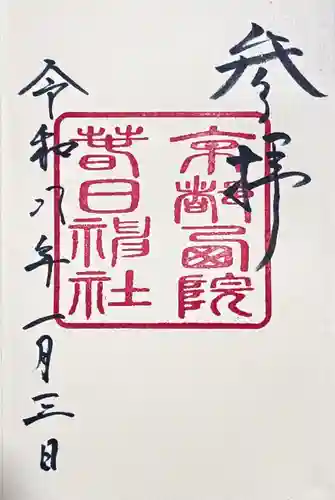 参拝
京都西院
春日神社
令和八年一月三日